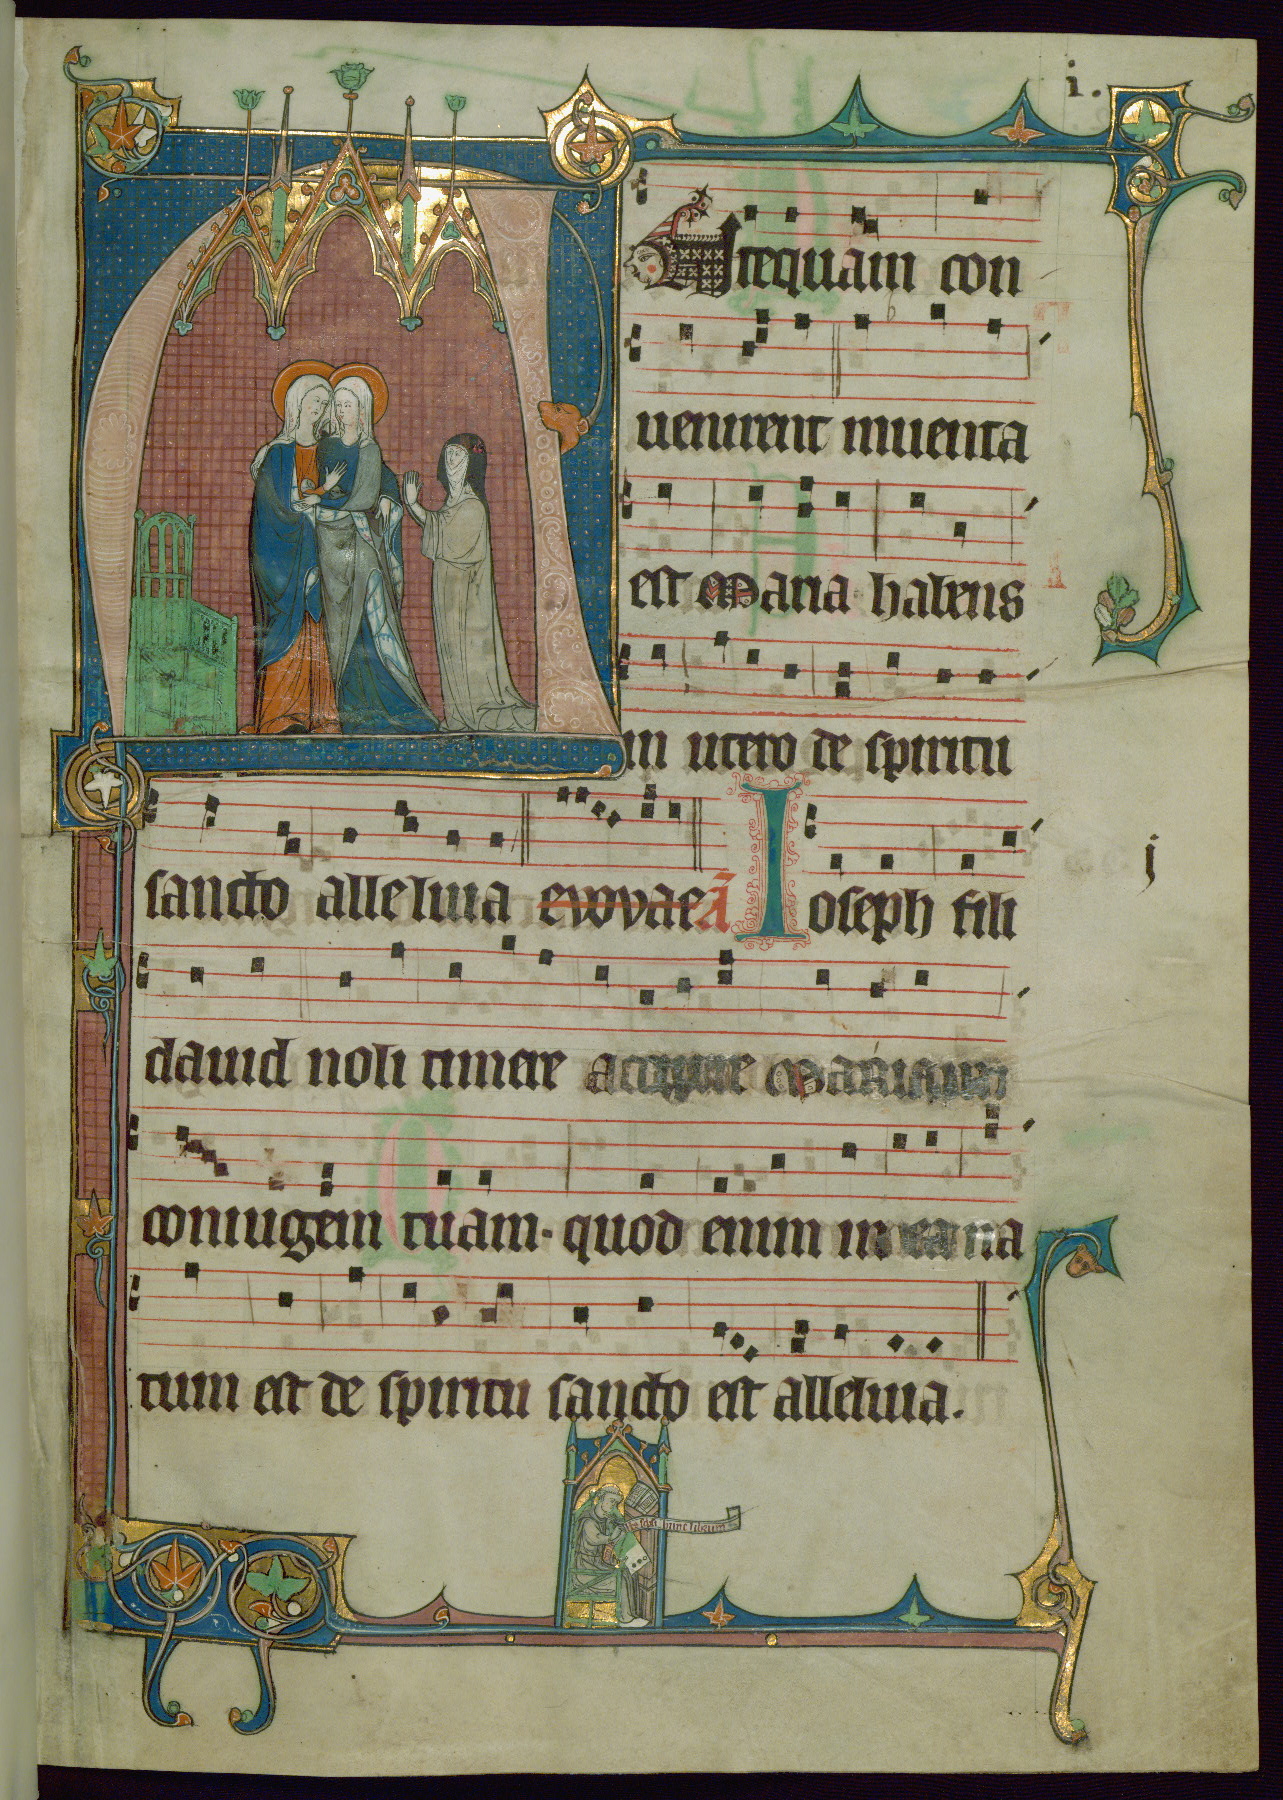 i.
Antequam con
uenirent inuenta
est Maria habens
in utero de spiritu
sancto alleluia evovae Ā Ioseph fili
j
dauid noli timere accipere Mariam
coniugem tuam. quod enim in ea na
tum est de spiritu sancto est alleluia.
scripsi hunc librum